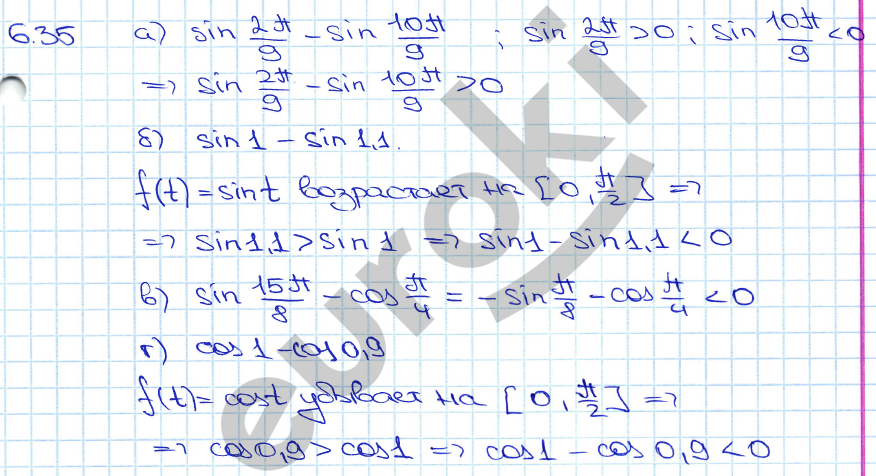 6.35 а) sin 2π/9 - sin 10π/9 ; sin 2π/9 >0 ; sin 10π/9 <0
=> sin 2π/9 - sin 10π/9 >0
б) sin 1 - sin 1,1.
f(t) = sin t возрастает на [0, π/2] =>
=> sin 1,1 > sin 1 => sin 1 - sin 1,1 < 0
в) sin 15π/8 - cos π/4 = - sin π/8 - cos π/4 < 0
г) cos 1 - cos 0,9
f(t) = cos t убывает на [0, π/2] =>
=> cos 0,9 > cos 1 => cos 1 - cos 0,9 < 0
euroki